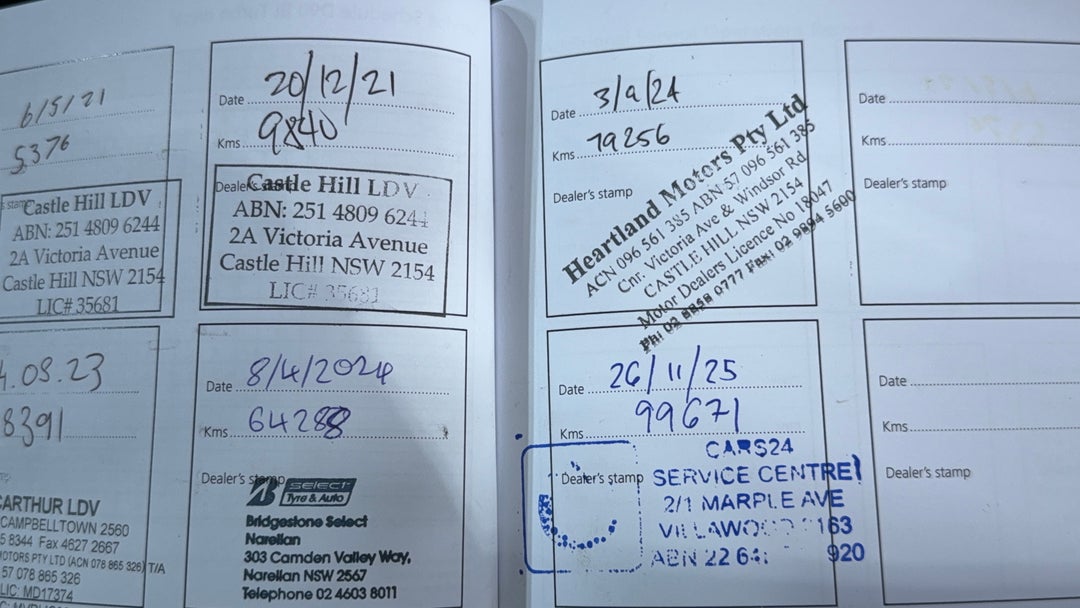 6/5/21
5376
Castle Hill LDV
ABN: 251 4809 6244
2A Victoria Avenue
Castle Hill NSW 2154
LIC# 35681
Date 20/12/21
Kms 9840
Dealer's stamp
Castle Hill LDV
ABN: 251 4809 6244
2A Victoria Avenue
Castle Hill NSW 2154
LIC# 35681
.08.23
8391
CARTHUR LDV
CAMPBELLTOWN 2560
5 8344 Fax 4627 2667
MOTORS PTY LTD (ACN 078 865 326) T/A
57 078 865 326
LIC: MD17374
Date 8/4/2024
Kms 64288
Dealer's stamp
SELECT
Tyre & Auto
Bridgestone Select
Narellan
303 Camden Valley Way,
Narellan NSW 2567
Telephone 02 4603 8011
Date 3/9/24
Kms 79256
Dealer's stamp
Heartland Motors Pty Ltd
ACN 096 561 385 ABN 57 096 561 385
Cnr. Victoria Ave & Windsor Rd
CASTLE HILL NSW 2154
Motor Dealers Licence No 18047
Ph: 02 8858 0777 Fax: 02 9894 5600
Date 26/11/25
Kms 99671
Dealer's stamp
CARS24
SERVICE CENTRE
2/1 MARPLE AVE
VILLAWOOD 2163
ABN 22 64 920
Date
Kms
Dealer's stamp
Date
Kms
Dealer's stamp